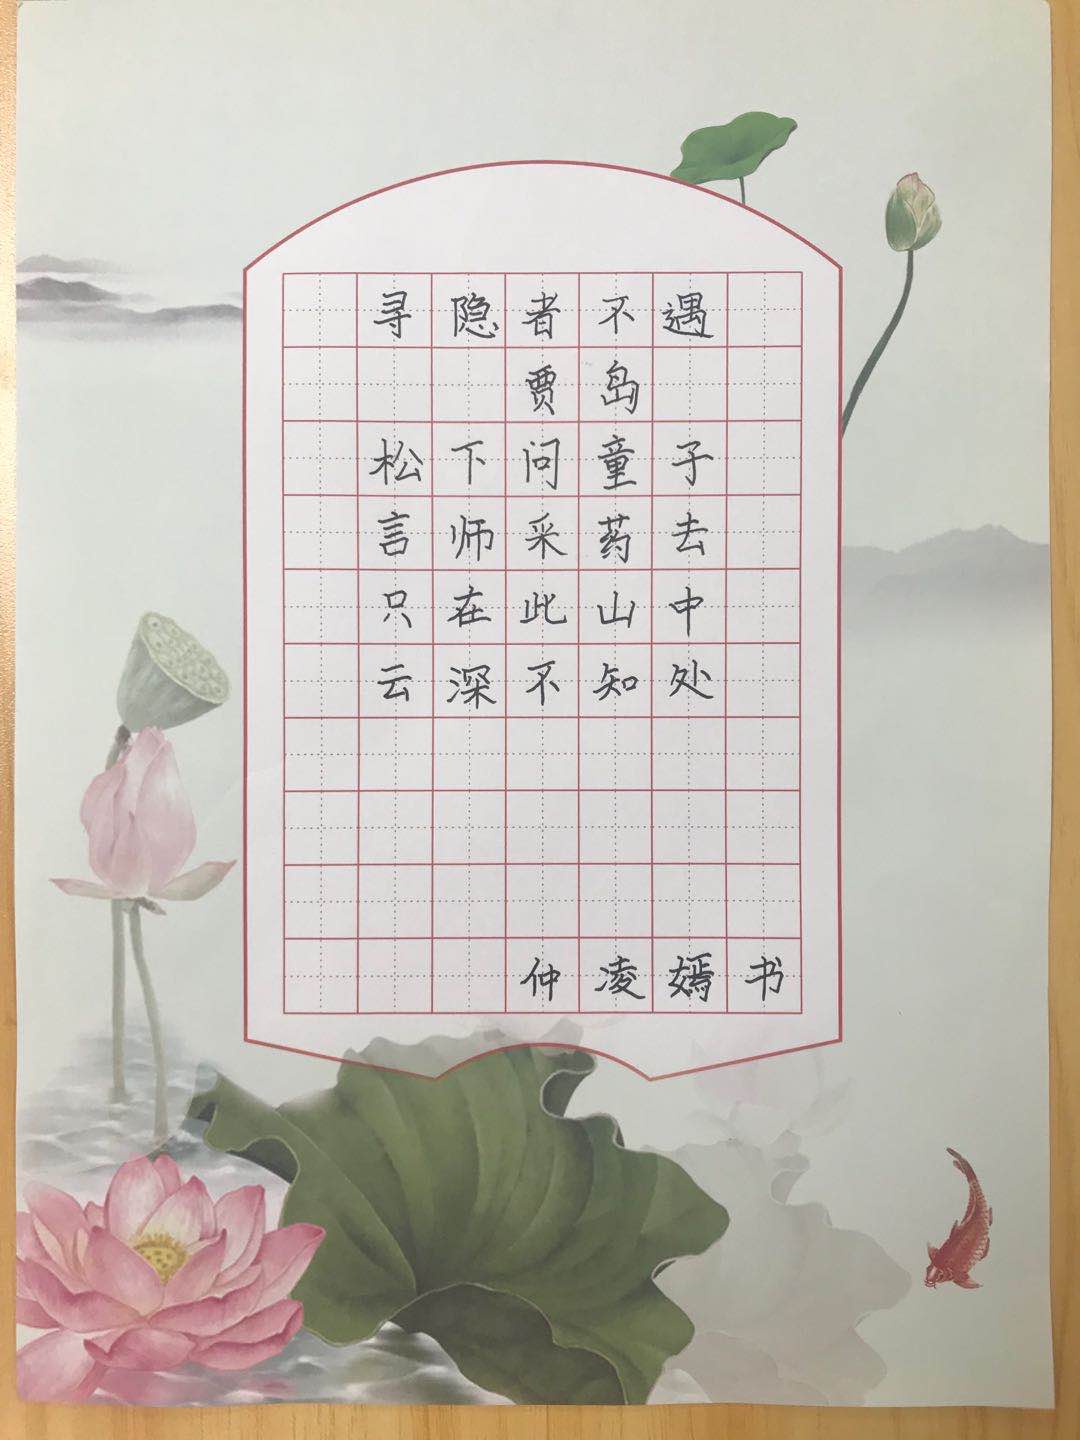 寻隐者不遇
贾岛
松下问童子
言师采药去
只在此山中
云深不知处
仲凌嫣书